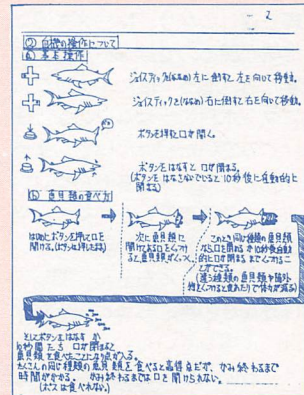 - 2
② 自機の操作について
ⓐ 基本操作
ジョイスティックを(ななめ)左に倒すと左を向いて移動。
ジョイスティックを(ななめ)右に倒すと右を向いて移動。
ボタンを押すと口が開く。
ボタンをはなすと口が閉まる。
(ボタンをはなさないでいると10秒後に自動的に
閉まる)
ⓑ 魚貝類の食べ方
はじめにボタンを押して口を
開ける。(ボタンは押したまま)
次に魚貝類に
開けた口をくっつけ
ると魚貝類がくっつく。
このとき同じ種類の魚貝類
なら口を閉めるか10秒後自動
的に口が閉まるまでくっつけるこ
とができる。
(違う種類の魚貝類や障外
物とくっつけると
そしてボタンをはなすか
10秒間たち 口が閉まると
魚貝類を食べたことになり点が入る。
たくさんの同じ種類の魚貝類を食べると高得点だが、かみ終わるまで
時間がかかる。 かみ終わるまでは口を開けられない。
(ボスは食べれない)